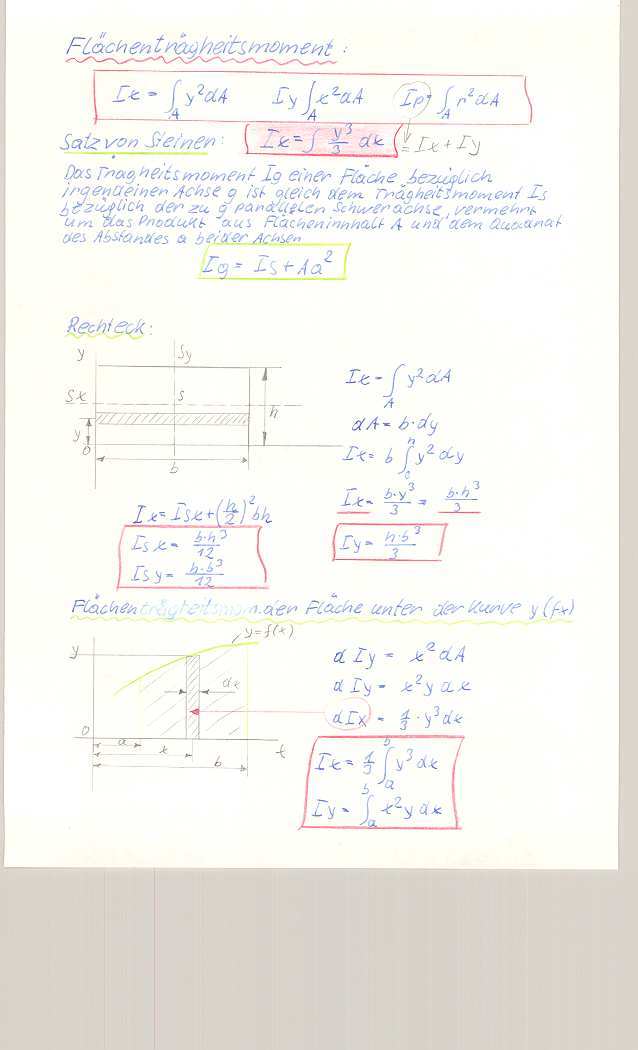 Flächenträgheitsmoment:
Ix = ∫_A y² dA   Iy ∫_A x² dA   Ip = ∫_A r² dA
Satz von Steinen: Ix = ∫ y³/3 dx = Ix + Iy
Das Trägheitsmoment Ig einer Fläche bezüglich
irgendeiner Achse g ist gleich dem Trägheitsmoment Is
bezüglich der zu g parallelen Schwerachse, vermehrt
um das Produkt aus Flächeninnhalt A und dem Quadrat
des Abstandes a beider Achsen
Ig = Is + Aa²
Rechteck:
y Sy
Sx S h
y
0
b
Ix = ∫_A y² dA
dA = b·dy
Ix = b ∫_0^h y² dy
Ix = b·y³/3 = b·h³/3
Iy = h·b³/3
Ix = Isx + (h/2)² bh
Isx = b·h³/12
Isy = h·b³/12
Flächenträgheitsmom. der Fläche unter der Kurve y (fx)
y y=f(x)
dx
0
a
x x
b
dIy = x² dA
dIy = x² y dx
dIx = 1/3 · y³ dx
Ix = 1/3 ∫_a^b y³ dx
Iy = ∫_a^b x² y dx